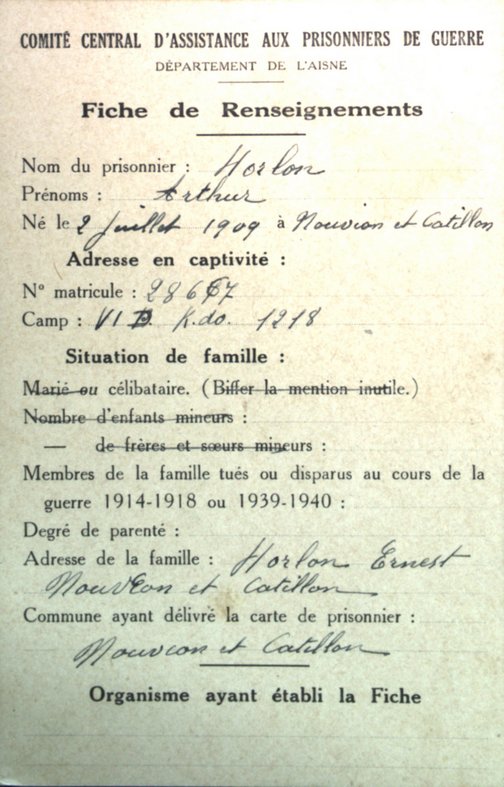 COMITÉ CENTRAL D'ASSISTANCE AUX PRISONNIERS DE GUERRE
DÉPARTEMENT DE L'AISNE
Fiche de Renseignements
Nom du prisonnier : Horlon
Prénoms : Arthur
Né le 2 Juillet 1909 à Nouvion et Catillon
Adresse en captivité :
N° matricule : 28667
Camp : VI D. K.do. 1218
Situation de famille :
Marié ou célibataire. (Biffer la mention inutile.)
Nombre d'enfants mineurs :
— de frères et sœurs mineurs :
Membres de la famille tués ou disparus au cours de la
guerre 1914-1918 ou 1939-1940 :
Degré de parenté :
Adresse de la famille : Horlon Ernest
Nouvion et Catillon
Commune ayant délivré la carte de prisonnier :
Nouvion et Catillon
Organisme ayant établi la Fiche